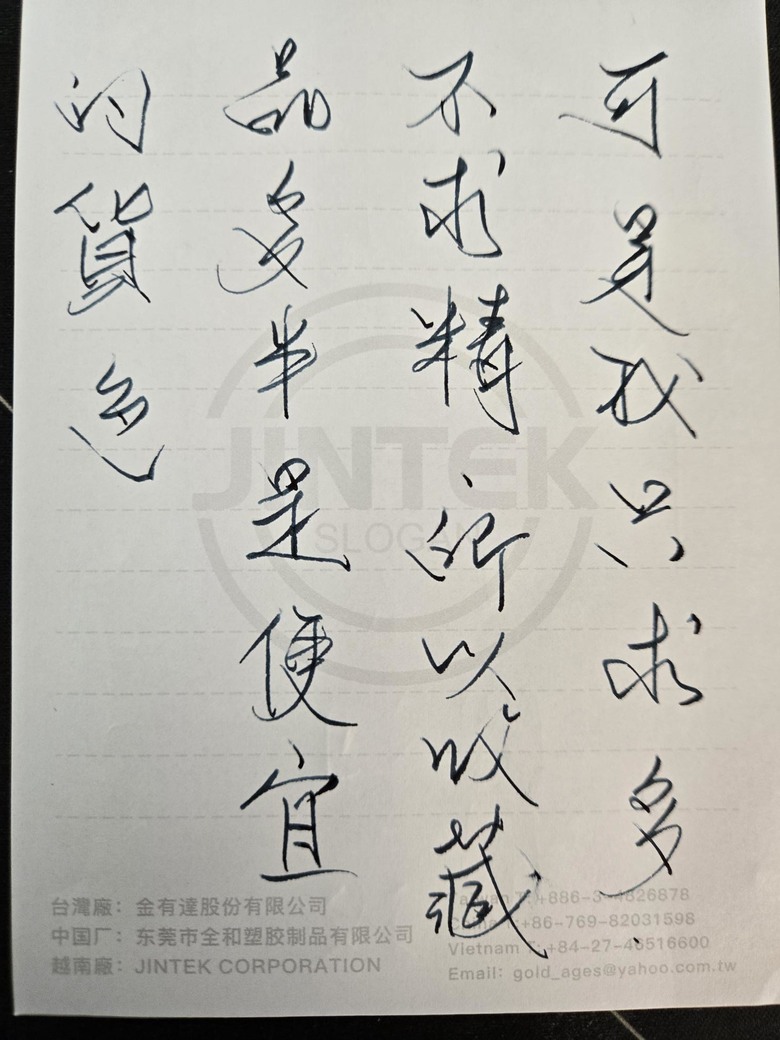 可是我只求多
不求精所以收藏
品多半是便宜
的貨色
JINTEK
SLOGAN
台灣廠：金有達股份有限公司
中国厂：东莞市全和塑胶制品有限公司
越南廠：JINTEK CORPORATION
+886-3-4826878
+86-769-82031598
Vietnam T:+84-27-46516600
Email：gold_ages@yahoo.com.tw